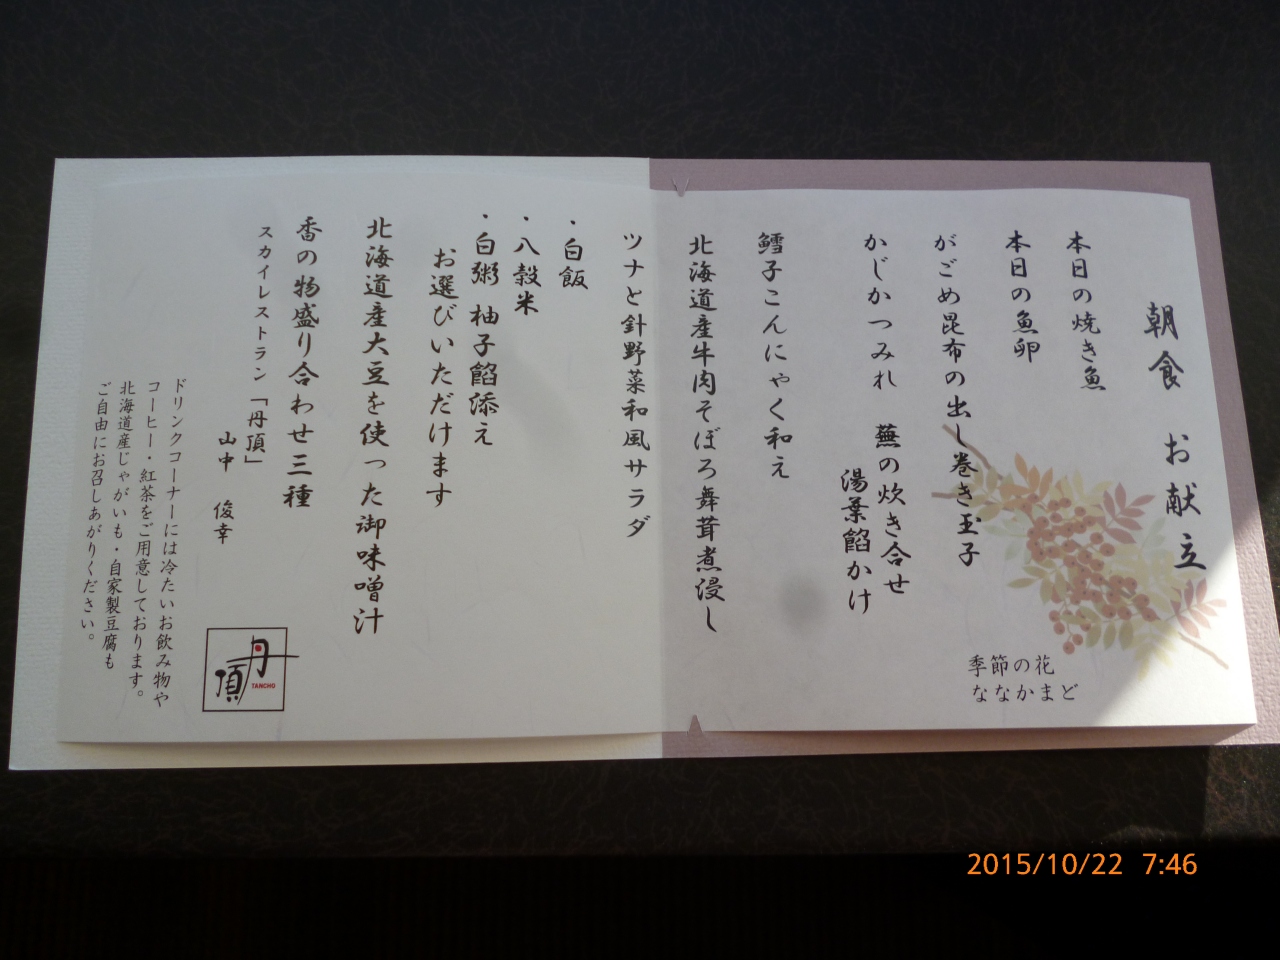 朝食 お献立
本日の焼き魚
本日の魚卵
がごめ昆布の出し巻き玉子
かじかつみれ 蕪の炊き合せ
湯葉餡かけ
鱈子こんにゃく和え
北海道産牛肉そぼろ舞茸煮浸し
ツナと針野菜和風サラダ
・白飯
・八穀米
・白粥 柚子餡添え
お選びいただけます
北海道産大豆を使った御味噌汁
香の物盛り合わせ三種
スカイレストラン「丹頂」
山中 俊幸
ドリンクコーナーには冷たいお飲み物や
コーヒー・紅茶をご用意しております。
北海道産じゃがいも・自家製豆腐も
ご自由にお召しあがりください。
季節の花
ななかまど
丹頂
TANCHO
2015/10/22 7:46